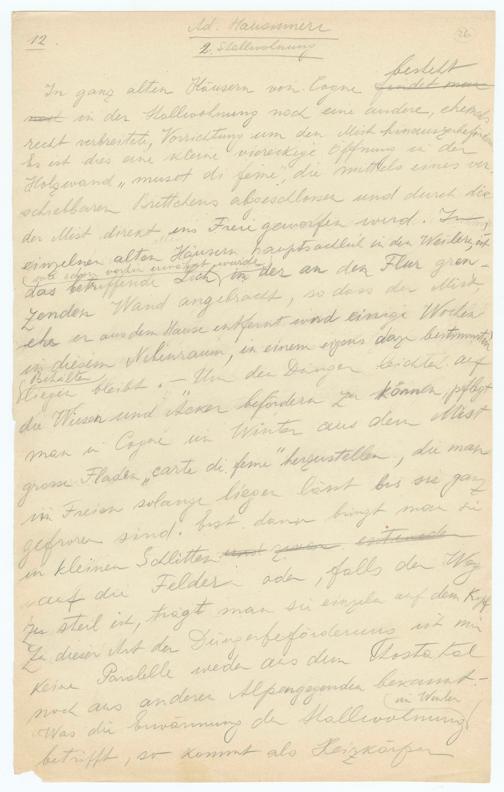 12.
Ad. Hausinnere
26
2. Stallwohnung
In ganz alten Häusern von Cogne besteht findet man
noch in der Stallwohnung noch eine andere, ehemals
recht verbreitete, Vorrichtung um den Mist hinauszubefördern.
Es ist dies eine kleine viereckige Öffnung in der
Holzwand, die mittels eines ver-
schiebbaren Brettchens abgeschlossen und durch die
der Mist direkt ins Freie geworfen wird. In
einzelnen alten Häusern hauptsächlich in den Weilern, ist
wie schon vorher erwähnt wurde
das betreffende Loch in der an den Flur gren-
zenden Wand angebracht, so dass der Mist,
ehe er aus dem Hause entfernt wird einige Wochen
in diesem Nebenraum, in einem eigens dazu bestimmten
Behälter
liegen bleibt. – Um den Dünger leichter auf
die Wiesen und Äcker befördern zu können, pflegt
man in Cogne im Winter aus dem Mist
grosse Fladen "carte di feme" herzustellen, die man
im Freien solange liegen lässt bis sie ganz
gefroren sind. Erst dann bringt man sie
in kleinen Schlitten und
auf die Felder oder, falls der Weg
zu steil ist, trägt man sie einzeln auf dem Kopf.
Zu dieser Art der Düngerbeförderung ist mir
keine Paralelle weder aus dem Aostatal
noch aus anderen Alpengegenden bekannt. –
Was die Erwärmung der Stallwohnung im Winter
betrifft, so kommt als Heizkörper